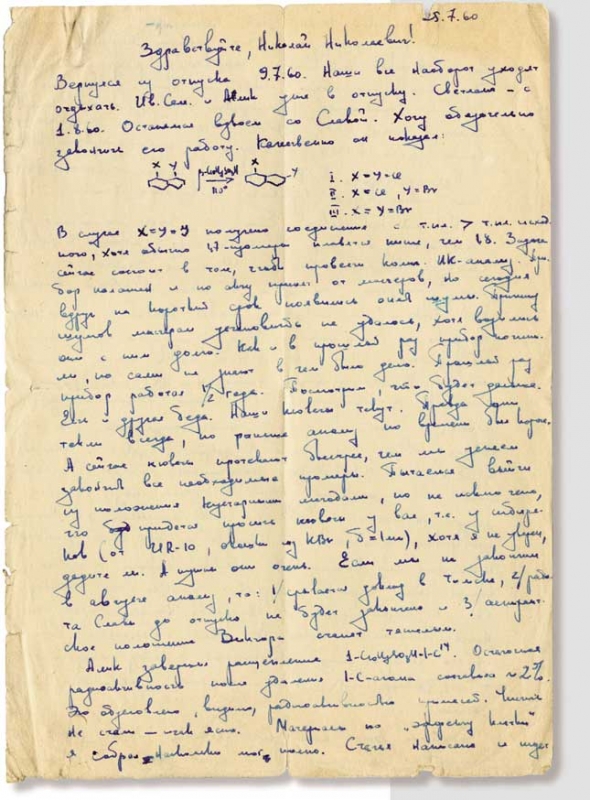 28.7.60
Здравствуйте, Николай Николаевич!
Вернулся из отпуска 9.7.60. Наши все наоборот уходят
отдыхать. Ив. Сем. и Алик уже в отпуску. Светлана – с
1.8.60. Остаемся вдвоем со Славой. Хочу обязательно
закончить его работу. Качественно он показал:
X Y X
Y
I. X=Y=Cl
II. X=Cl, Y=Br
III. X=Y=Br
В случае X=Y= получено соединение с т.пл. > т.пл. исход-
ного, хотя обычно 1,7-изомеры плавятся ниже, чем 1,8. Задача
сейчас состоит в том, чтобы провести колич. ИК-анализ. При-
бор налажен и по акту принят от мастеров, но сегодня
вдруг на короткий срок появились опять шумы. Причину
шумов мастерам установить не удалось, хотя возились
они с ним долго. Как и в прошлый раз прибор почини-
ли, но сами не знают в чем было дело. Прошлый раз
прибор работал 1/2 года. Посмотрим, что будет дальше.
Есть и другая беда. Наши кюветы текут. Правда они
текли всегда, но раньше анализ по времени был короче.
А сейчас кюветы протекают быстрее, чем мы успеем
закончить все необходимые промеры. Пытаемся выйти
из положения кустарными методами, но не исключено,
что придется просить кюветы у вас, т.е. у сибиря-
ков (от UR-10, окошки из KBr, б=1мм), хотя я не уверен,
дадите ли. А нужны они очень. Если мы не закончим
в августе анализ, то: 1/ срывается доклад в Томске, 2/ рабо-
та Славы до отпуска не будет закончена и 3/ аспирант-
ское положение Виктора станет тяжелым.
Алик завершил расщепление 1-C₁₀H₇SO₃H-1-C¹⁴. Остаточная
радиоактивность после удаления 1-C-атома составила ~ 2%.
Это обусловлено, видимо, радиоактивностью примесей.
Не счет – ясно. Материалы по „эффекту клетки"
я собрал, насколько мог, полно. Статья написана и ждет